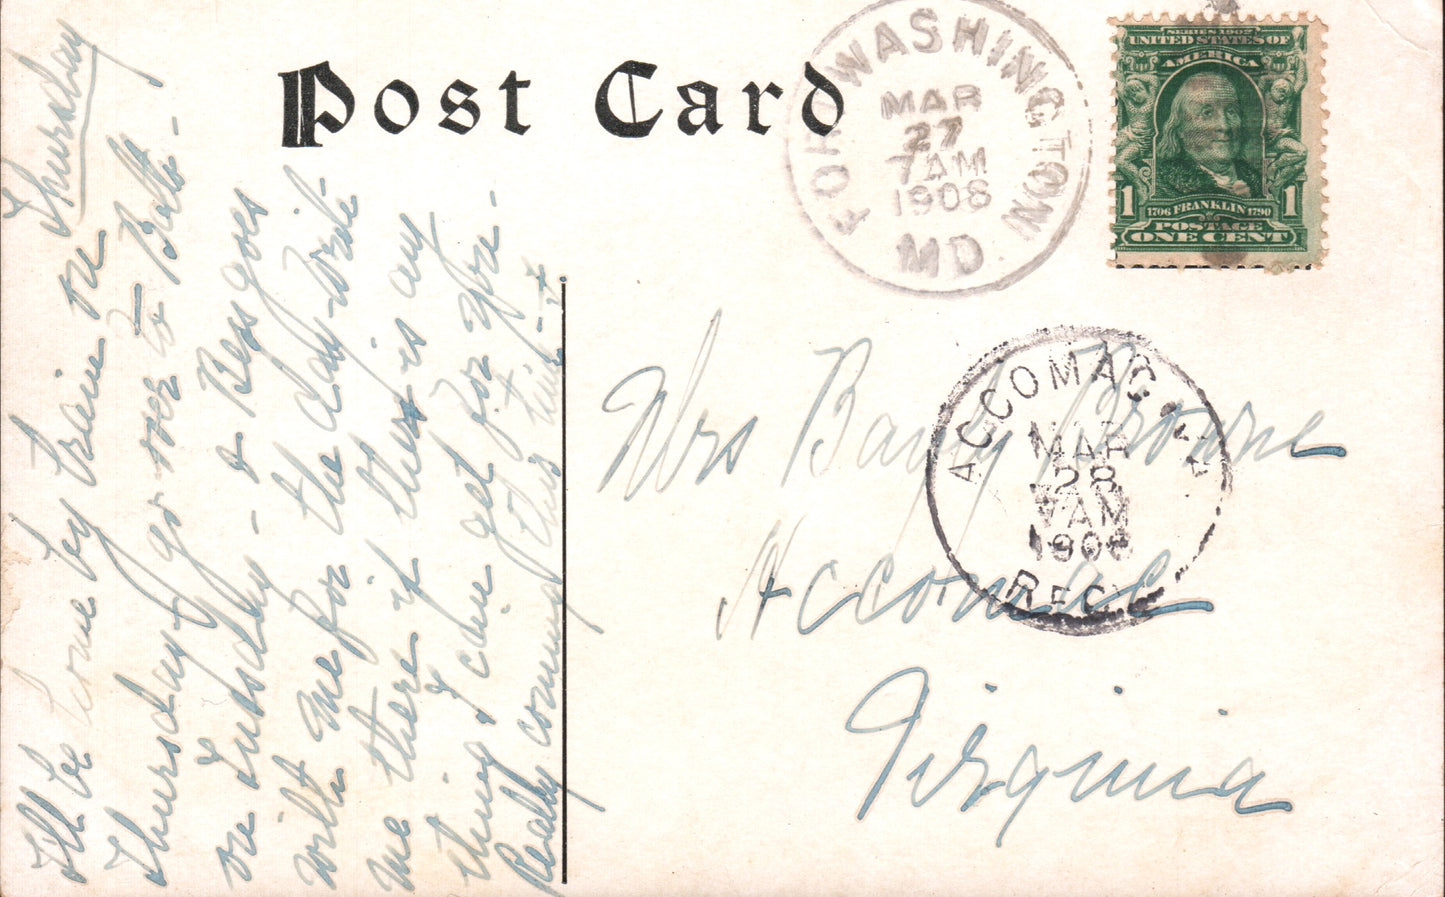 Post Card
FORT WASHINGTON
MAR
27
7 AM
1908
MD.
SERIES 1902
UNITED STATES OF
AMERICA
1 1706 FRANKLIN 1790 1
POSTAGE
ONE CENT
ACCOMAC, VA.
MAR
28
AM
1908
REC'D
Mrs Bayly Browne
Accomac
Virginia
Thursday
I'll be home by train on
Thursday + go over to Balto -
on Tuesday - + Bess goes
with me for the day. Write
me there if there is any
thing I can get for you -
Really coming this time -